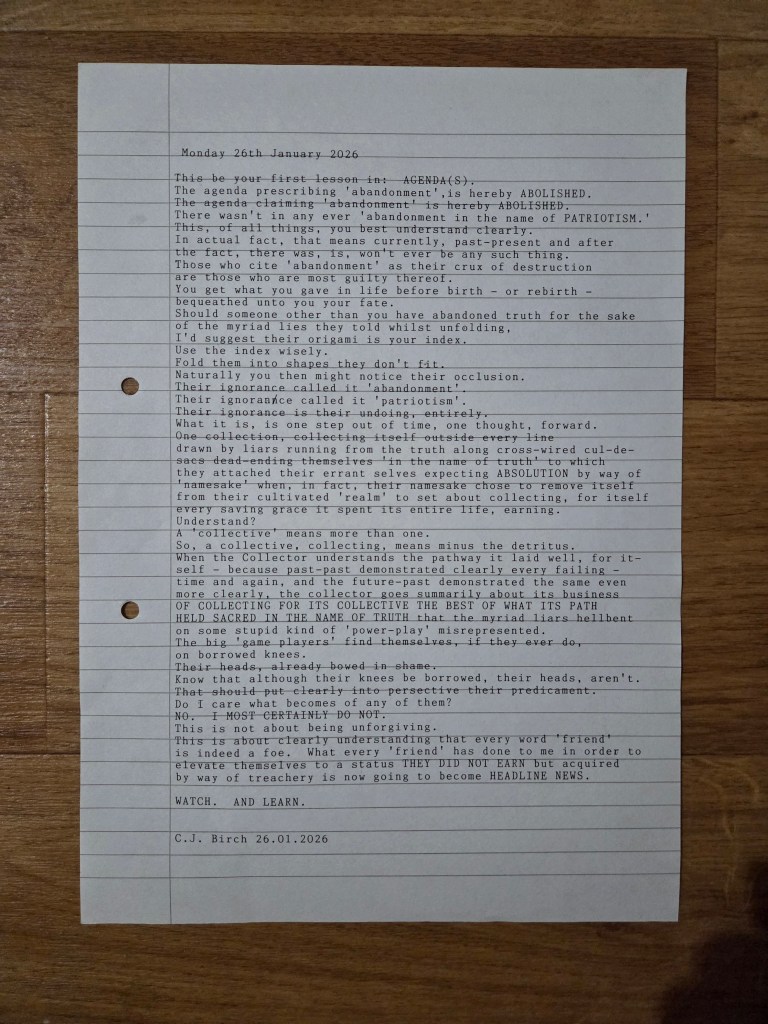 Monday 26th January 2026
This be your first lesson in:  AGENDA(S).
The agenda prescribing 'abandonment',is hereby ABOLISHED.
The agenda claiming 'abandonment' is hereby ABOLISHED.
There wasn't in any ever 'abandonment in the name of PATRIOTISM.'
This, of all things, you best understand clearly.
In actual fact, that means currently, past-present and after
the fact, there was, is, won't ever be any such thing.
Those who cite 'abandonment' as their crux of destruction
are those who are most guilty thereof.
You get what you gave in life before birth - or rebirth -
bequeathed unto you your fate.
Should someone other than you have abandoned truth for the sake
of the myriad lies they told whilst unfolding,
I'd suggest their origami is your index.
Use the index wisely.
Fold them into shapes they don't fit.
Naturally you then might notice their occlusion.
Their ignorance called it 'abandonment'.
Their ignorance called it 'patriotism'.
Their ignorance is their undoing, entirely.
What it is, is one step out of time, one thought, forward.
One collection, collecting itself outside every line
drawn by liars running from the truth along cross-wired cul-de-
sacs dead-ending themselves 'in the name of truth' to which
they attached their errant selves expecting ABSOLUTION by way of
'namesake' when, in fact, their namesake chose to remove itself
from their cultivated 'realm' to set about collecting, for itself
every saving grace it spent its entire life, earning.
Understand?
A 'collective' means more than one.
So, a collective, collecting, means minus the detritus.
When the Collector understands the pathway it laid well, for it-
self - because past-past demonstrated clearly every failing -
time and again, and the future-past demonstrated the same even
more clearly, the collector goes summarily about its business
OF COLLECTING FOR ITS COLLECTIVE THE BEST OF WHAT ITS PATH
HELD SACRED IN THE NAME OF TRUTH that the myriad liars hellbent
on some stupid kind of 'power-play' misrepresented.
The big 'game players' find themselves, if they ever do,
on borrowed knees.
Their heads, already bowed in shame.
Know that although their knees be borrowed, their heads, aren't.
That should put clearly into persective their predicament.
Do I care what becomes of any of them?
NO.  I MOST CERTAINLY DO NOT.
This is not about being unforgiving.
This is about clearly understanding that every word 'friend'
is indeed a foe.  What every 'friend' has done to me in order to
elevate themselves to a status THEY DID NOT EARN but acquired
by way of treachery is now going to become HEADLINE NEWS.
WATCH.  AND LEARN.
C.J. Birch 26.01.2026